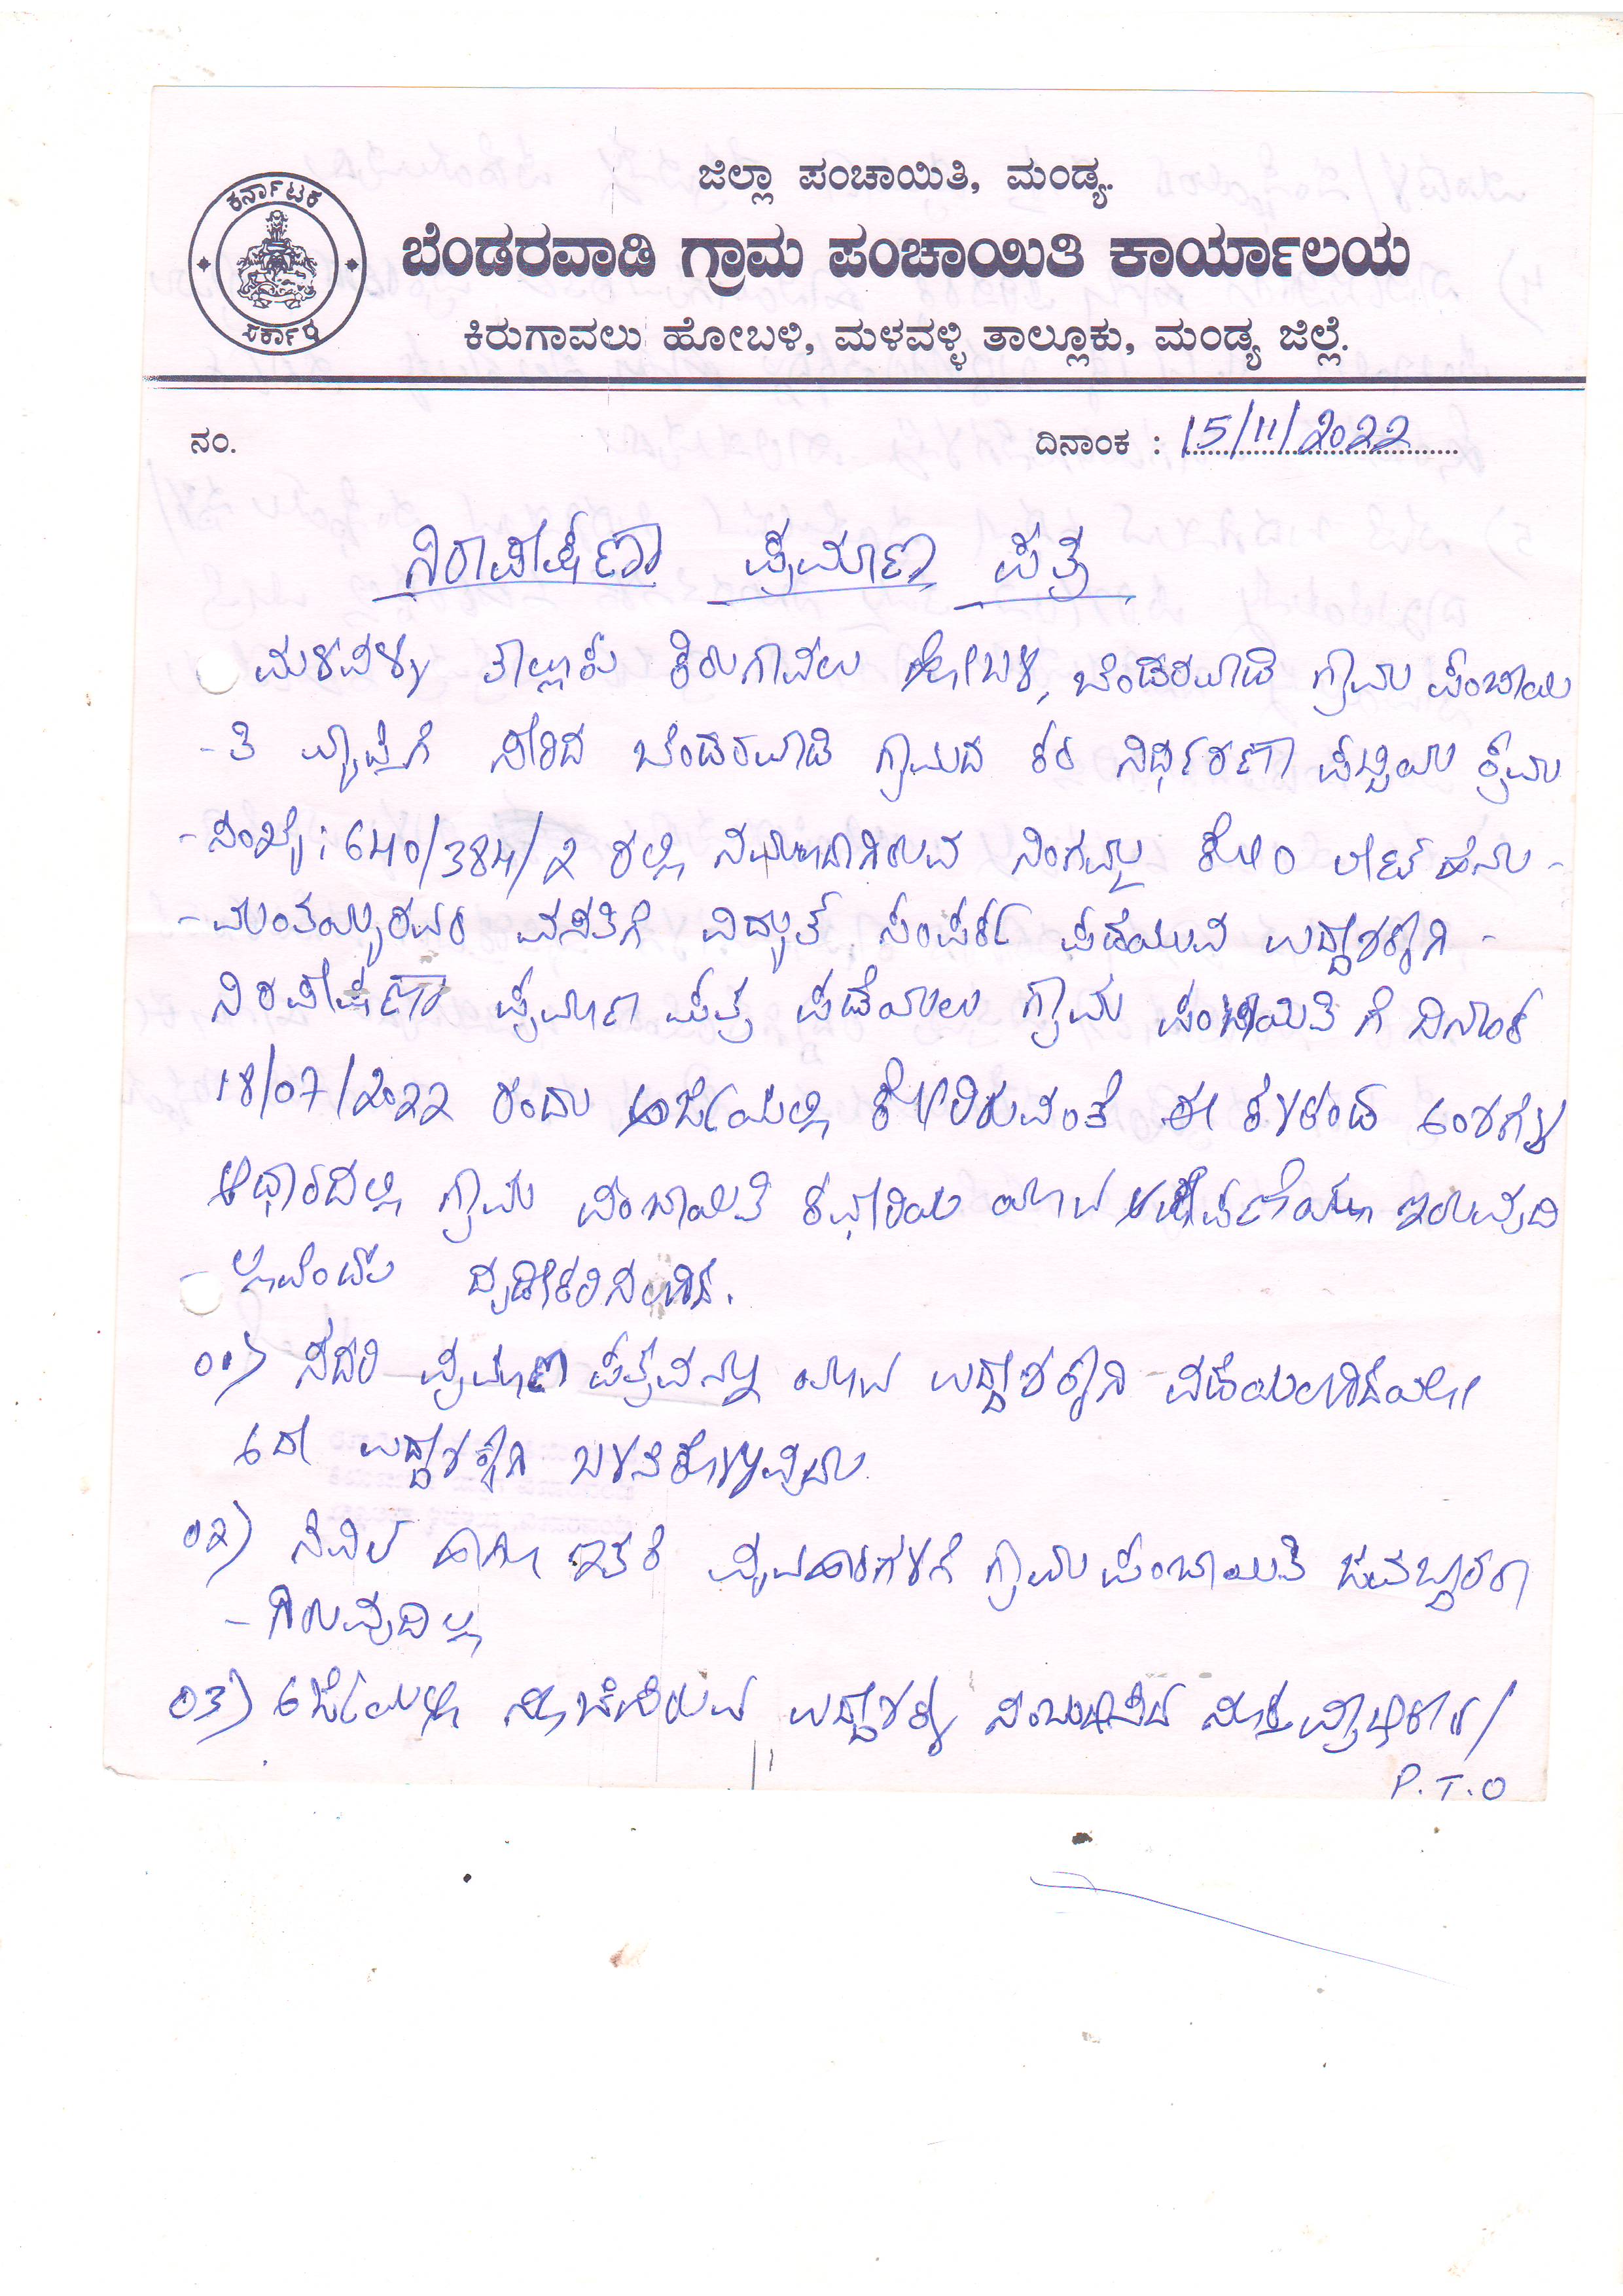 ಕರ್ನಾಟಕ
ಸರ್ಕಾರ
ಜಿಲ್ಲಾ ಪಂಚಾಯಿತಿ, ಮಂಡ್ಯ.
ಬೆಂಡರವಾಡಿ ಗ್ರಾಮ ಪಂಚಾಯಿತಿ ಕಾರ್ಯಾಲಯ
ಕಿರುಗಾವಲು ಹೋಬಳಿ, ಮಳವಳ್ಳಿ ತಾಲ್ಲೂಕು, ಮಂಡ್ಯ ಜಿಲ್ಲೆ.
ನಂ. ದಿನಾಂಕ : 15/11/2022
ನಿರಾಪೇಕ್ಷಣಾ ಪ್ರಮಾಣ ಪತ್ರ
ಮಳವಳ್ಳಿ ತಾಲ್ಲೂಕು ಕಿರುಗಾವಲು ಹೋಬಳಿ, ಬೆಂಡರವಾಡಿ ಗ್ರಾಮ ಪಂಚಾಯಿ
-ತಿ ವ್ಯಾಪ್ತಿಗೆ ಸೇರಿದ ಬೆಂಡರವಾಡಿ ಗ್ರಾಮದ ಕರ ನಿರ್ಧರಣಾ ಪಟ್ಟಿಯ ಕ್ರಮ
-ಸಂಖ್ಯೆ: 640/384/2 ರಲ್ಲಿ ನಮೂದಾಗಿರುವ ನಿಂಗಮ್ಮ ಕೋಂ ಲೇಟ್ ಹನು-
-ಮಂತಯ್ಯರವರ ವಸತಿಗೆ ವಿದ್ಯುತ್ ಸಂಪರ್ಕ ಪಡೆಯುವ ಉದ್ದೇಶಕ್ಕಾಗಿ-
ನಿರಪೇಕ್ಷಣಾ ಪ್ರಮಾಣ ಪತ್ರ ಪಡೆಯಲು ಗ್ರಾಮ ಪಂಚಾಯಿತಿ ಗೆ ದಿನಾಂಕ
18/07/2022 ರಂದು ಅರ್ಜಿಯಲ್ಲಿ ಕೋರಿರುವಂತೆ ಈ ಕೆಳಕಂಡ ಅಂಶಗಳ
ಆಧಾರದಲ್ಲಿ ಗ್ರಾಮ ಪಂಚಾಯಿತಿ ಕಛೇರಿಯ ಯಾವ ಆಕ್ಷೇಪಣೆಯೂ ಇರುವುದಿ
-ಲ್ಲವೆಂದು ದೃಢೀಕರಿಸಲಾಗಿದೆ.
01) ಸದರಿ ಪ್ರಮಾಣ ಪತ್ರವನ್ನು ಯಾವ ಉದ್ದೇಶಕ್ಕಾಗಿ ಪಡೆಯಲಾಗಿದೆಯೋ
ಅದೇ ಉದ್ದೇಶಕ್ಕಾಗಿ ಬಳಸಿಕೊಳ್ಳುವುದು
02) ಸಿವಿಲ್ ಹಾಗೂ ಇತರೆ ವ್ಯವಹಾರಗಳಿಗೆ ಗ್ರಾಮ ಪಂಚಾಯಿತಿ ಜವಬ್ದಾರರಾ
-ಗಿರುವುದಿಲ್ಲ
03) ಅರ್ಜಿಯಲ್ಲಿ ಸೂಚಿಸಿರುವ ಉದ್ದೇಶಕ್ಕೆ ಸಂಬಂಧಿಸಿದ ಸಕ್ಷಮ ಪ್ರಾಧಿಕಾರ/
P.T.O